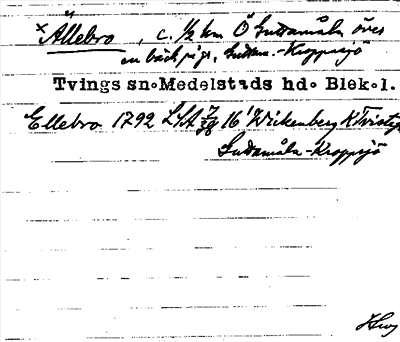 ×Ällebro, c. ½ km Ö Suttamåla över
en bäck på gr. Suttam.-Kroppsjö
Tvings sn. Medelstads hd. Blek.l.
Ellebro 1792 LSA 16 Wickenberg K Tvistig
Suttamåla-Kroppsjö